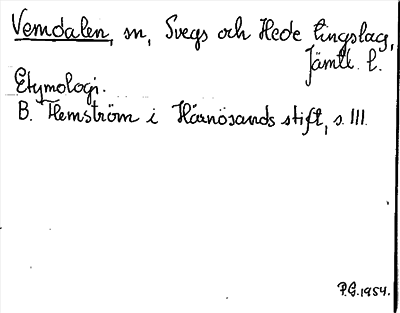 Vemdalen, sn, Svegs och Hede tingslag,
Jämtl. l.
Etymologi.
B. Hemström i Härnösands stift, s. 111.
P.G. 1954.